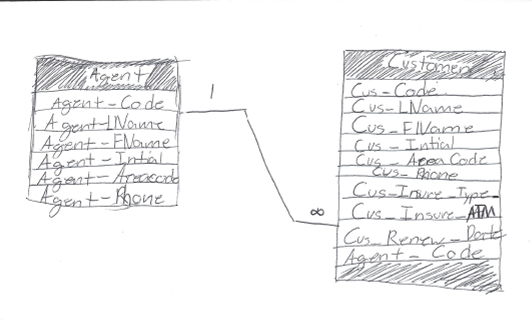 Agent
Agent-Code
Agent-LName
Agent-FName
Agent-Intial
Agent-Areacode
Agent-Phone
1
∞
Customer
Cus-Code
Cus-LName
Cus-FName
Cus-Intial
Cus-Area Code
Cus-Phone
Cus-Insure_Type
Cus_Insure_ATM
Cus_Renew_Date
Agent_Code